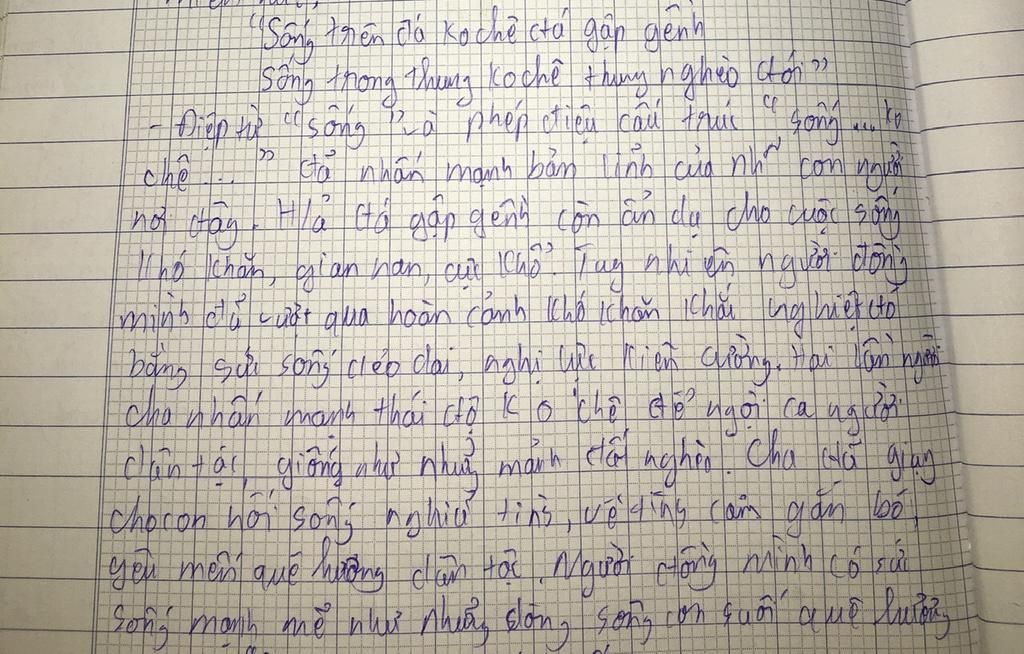 "Sống trên đá ko chê đá gập gềnh
Sống trong thung ko chê thung nghèo đói"
- Điệp từ "sống" và phép điệu cấu trúc "sống... ko
chê..." đã nhấn mạnh bản lĩnh của nh~ con người
nơi đây. H/ả đá gập gềnh còn ẩn dụ cho cuộc sống
khó khăn, gian nan, cực khổ. Tuy nhiên người đồng
mình đã vượt qua hoàn cảnh khó khăn khắc nghiệt đó
bằng sức sống dẻo dai, nghị lực kiên cường. Hai lần người
cha nhấn mạnh thái độ ko chê để ngợi ca người
dân tộc, giống như những mảnh đất nghèo. Cha đã giạy
cho con nối sống nghiã tình, về tình cảm gắn bó,
yêu mến quê hương dân tộc. Người đồng mình có sức
sống mạnh mẽ như những dòng sông con suối quê hương